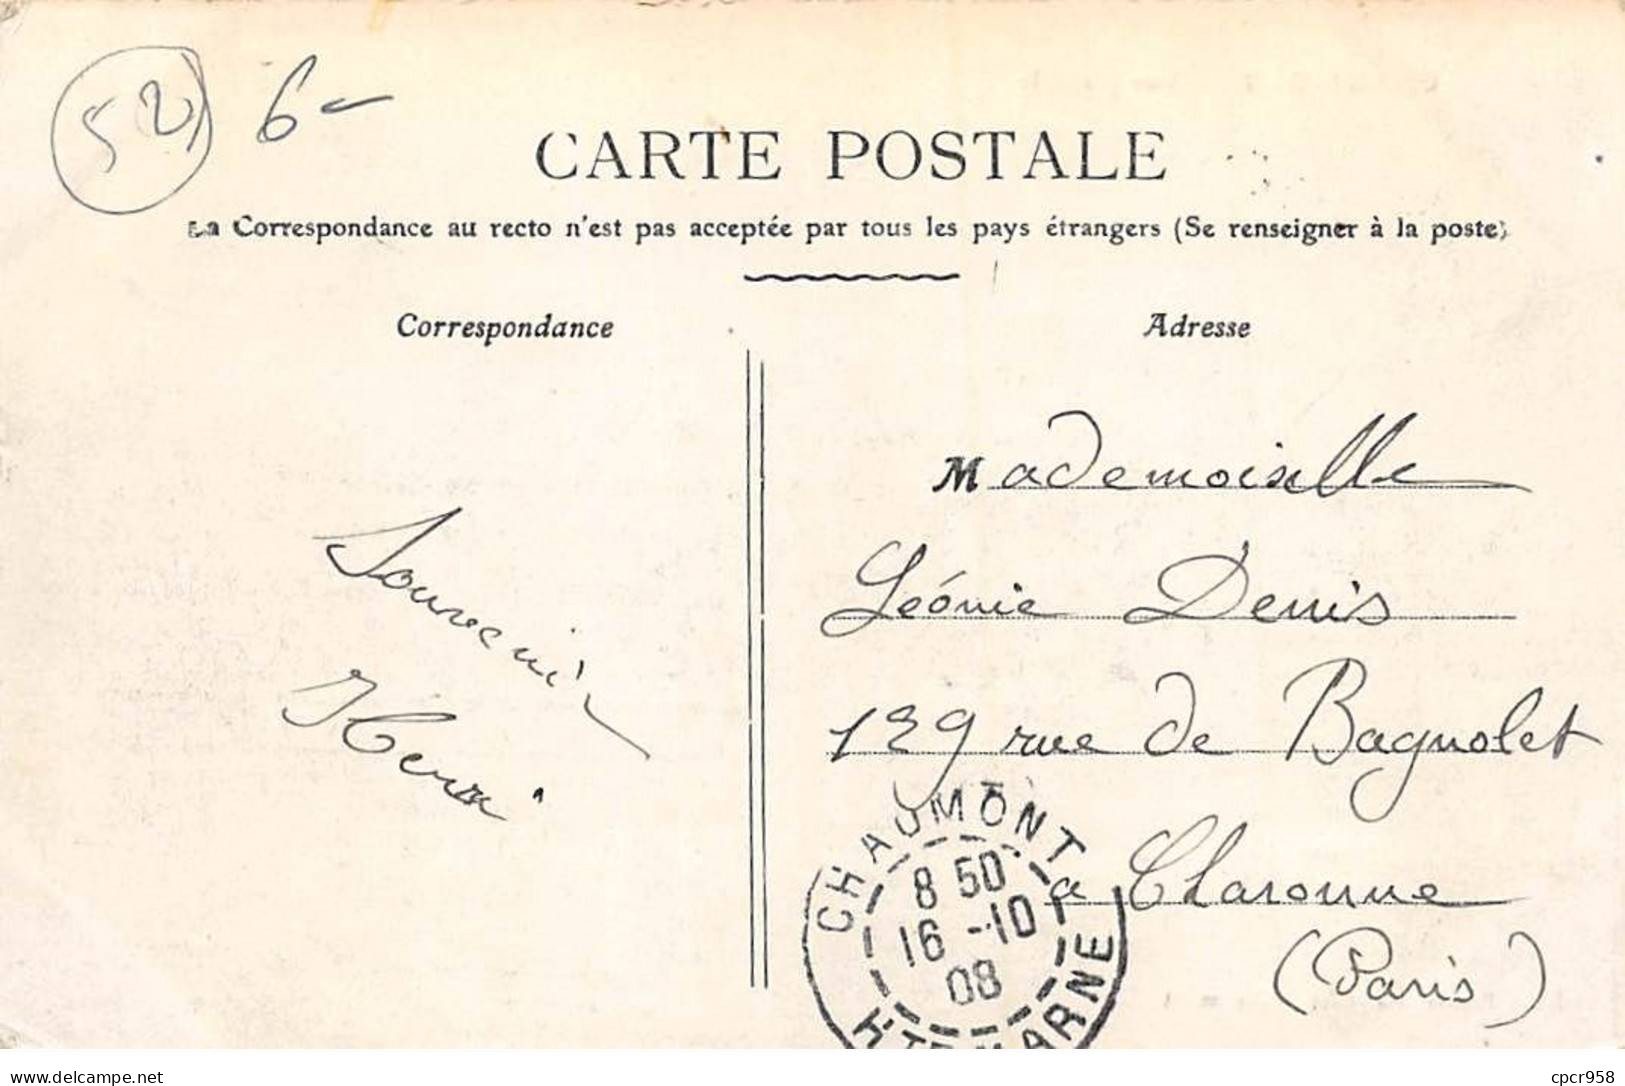 52
6-
CARTE POSTALE
La Correspondance au recto n'est pas acceptée par tous les pays étrangers (Se renseigner à la poste)
Correspondance
Souvenir
Henri
Adresse
Mademoiselle
Léonie Denis
129 rue de Bagnolet
à Charonne
(Paris)
CHAUMONT
8 50
16 -10
08
HTE MARNE
www.delcampe.net
cpcr958